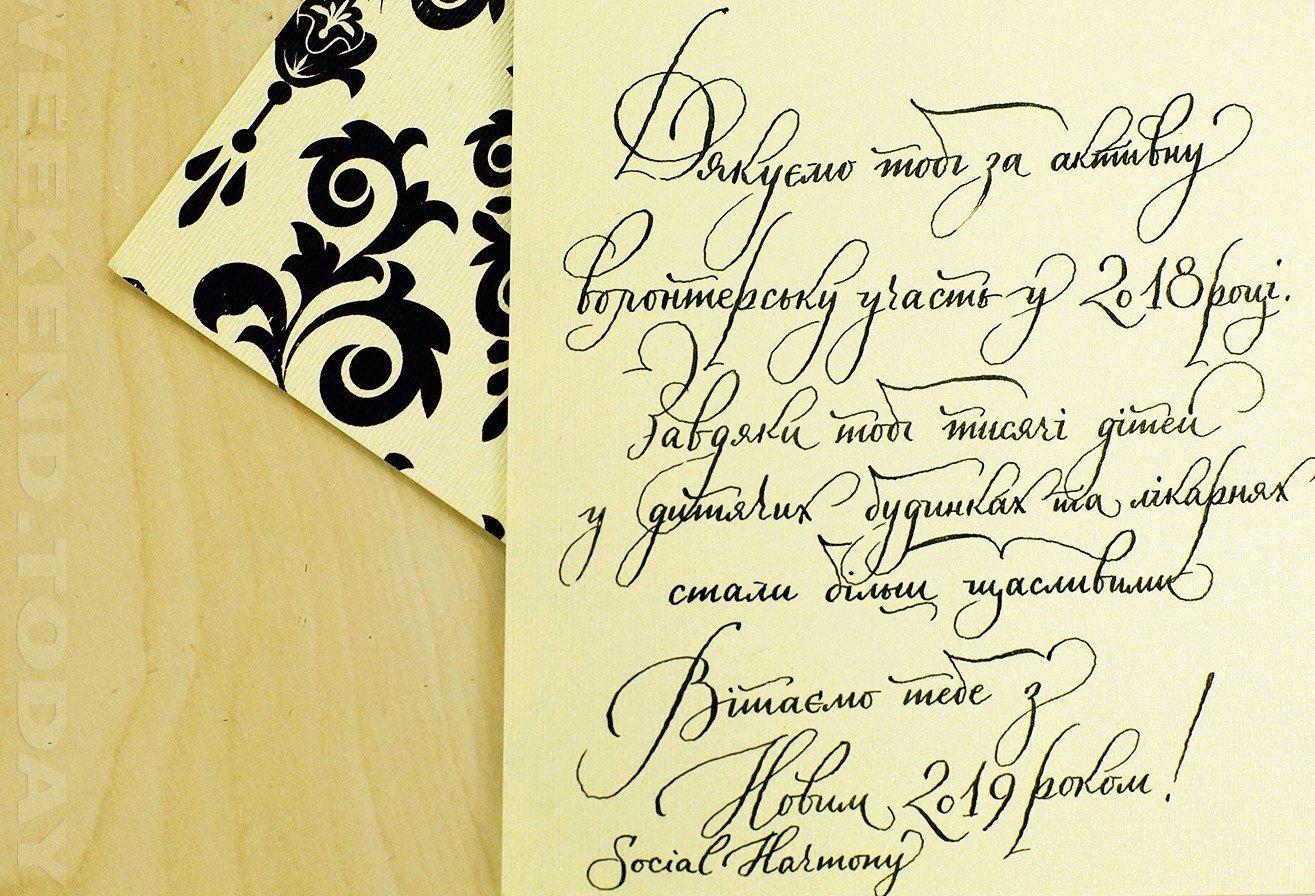 WEEKEND.TODAY
Дякуємо тобі за активну
волонтерську участь у 2018 році.
Завдяки тобі тисячі дітей
у дитячих будинках та лікарнях
стали більш щасливими
Вітаємо тебе з
Новим 2019 роком!
Social Harmony